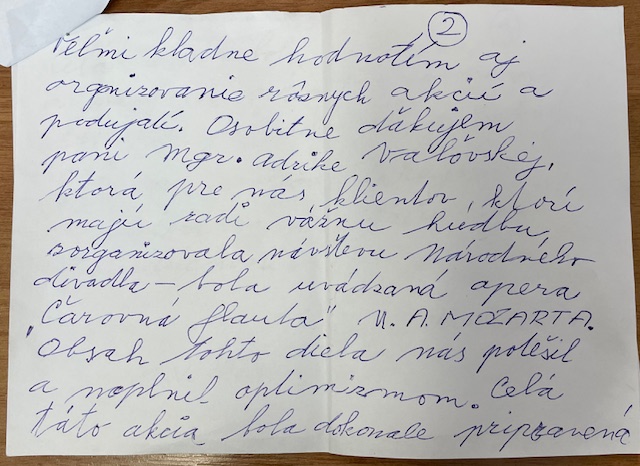 ②
Veľmi kladne hodnotím aj
organizovanie rôznych akcií a
podujatí. Osobitne ďakujem
pani Mgr. Adrike Valovskej,
ktorá pre nás klientov, ktorí
majú radi vážnu hudbu,
zorganizovala návštevu Národného
divadla – bola uvádzaná opera
„Čarovná flauta" W. A. MOZARTA.
Obsah tohto diela nás potešil
a naplnil optimizmom. Celá
táto akcia bola dokonale pripravená